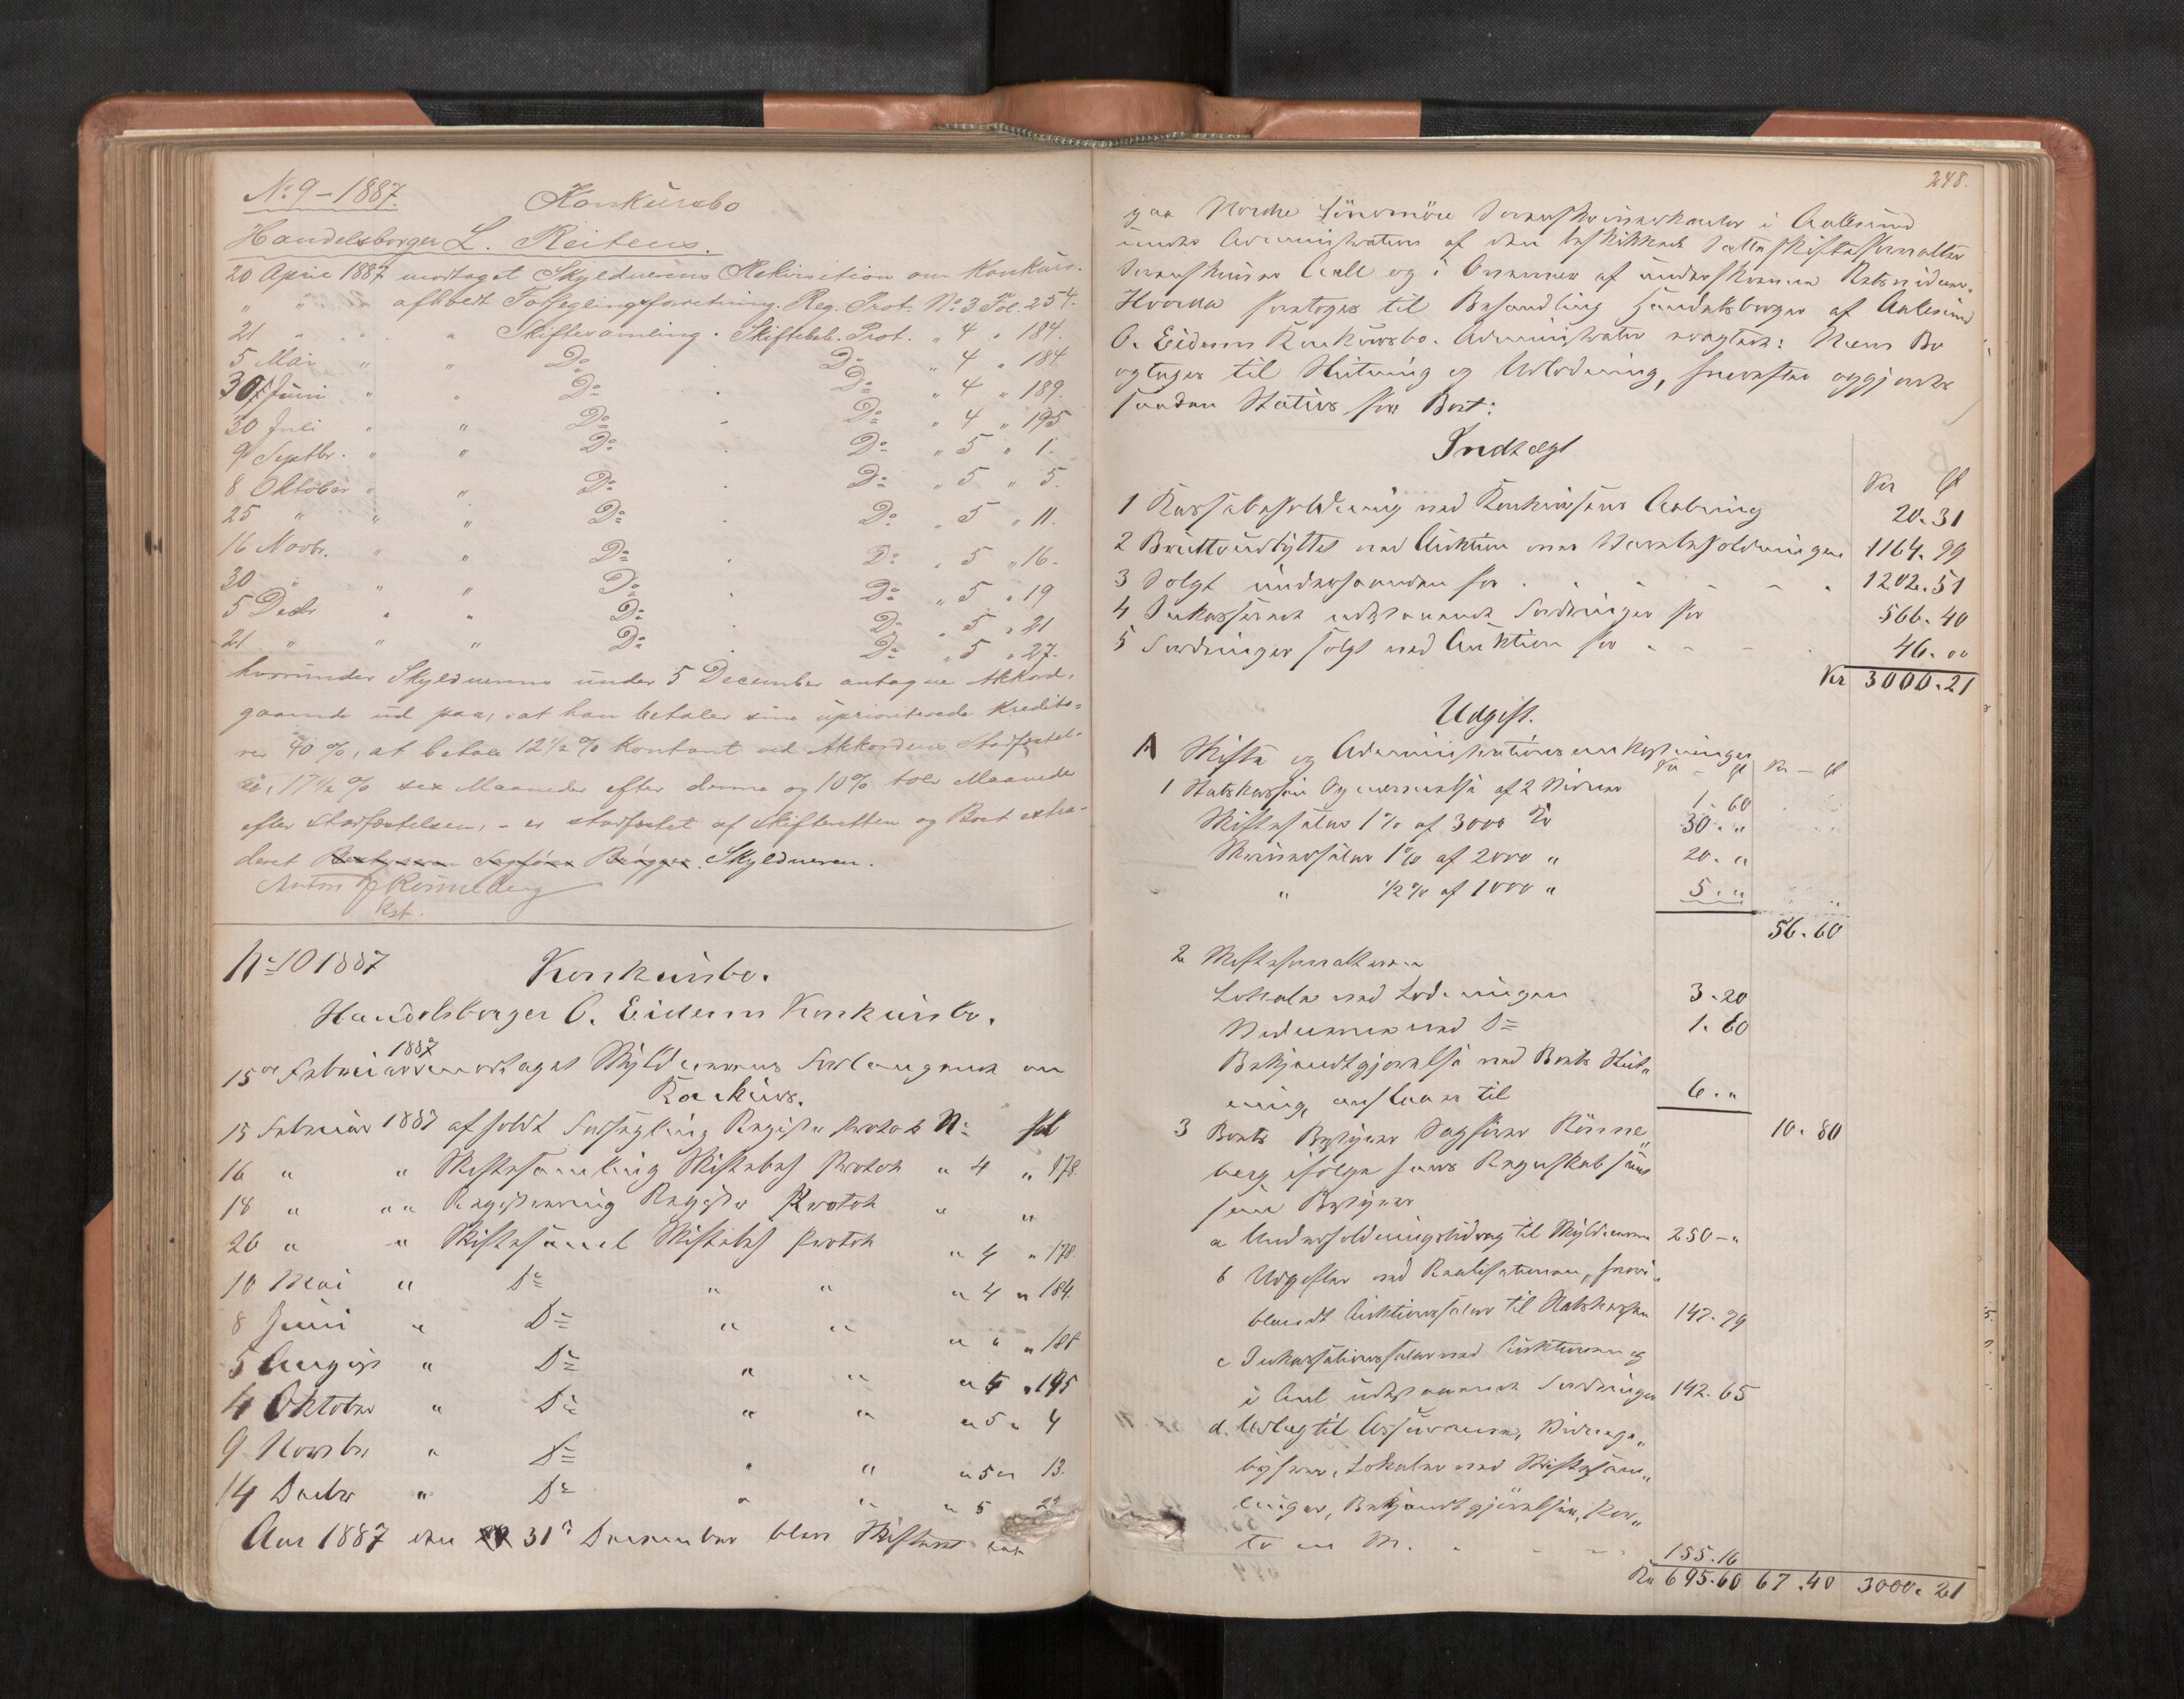 No 9 - 1887. Konkursbo
Handelsborger L. Reitens.
20 April 1887 modtaget Skyldnerens Rekvisition om Konkurs.
" " afholdt Forseglingsforretning. Reg. Prot. No 3 Fol. 254.
21 " " Skiftesamling. Skiftebeh. Prot. " 4 " 184.
5 Mai " " Do Do " 4 " 184
30 Juni " " Do Do " 4 " 189.
30 Juli " " Do Do " 4 " 195
9 Septbr. " " Do Do " 5 " 1.
8 Oktober " " Do Do " 5 " 5.
25 " " " Do Do " 5 " 11.
16 Novbr. " " Do Do " 5 " 16.
30 " " " Do Do " 5 " 19
5 Decbr " " Do Do " 5 " 21
21 " " " Do Do " 5 " 27.
hvorunder Skyldnerens under 5 December antagne Akkord,
gaaende ud paa, at han betaler sine uprioriterede Kredito=
rer 40 %, at betale 12 1/2 % kontant ved Akkordens Stadfæstel=
se, 17 1/2 % sex Maaneder efter denne og 10 % tolv Maaneder
efter Stadfæstelsen, - er stadfæstet af Skifteretten og Boet extra=
deret Skyldneren.
Anton Rønneberg
Kst.
No 10 1887 Konkursbo.
Handelsborger O. Eidems Konkursbo.
15de Februar 1887 modtaget Skyldnerens Forlangende om
Konkurs.
15 Februar 1887 afholdt Forsegling Register Protok No fol
16 " " Skiftesamling Skiftebeh Protok " 4 " 178
18 " " " Registrering Register Protok " "
26 " " Skiftesaml Skiftebeh Protok " 4 " 178.
10 Mai " Do " " " 4 " 184.
8 Juni " Do " " " " " 188
5 August " Do " " " 4 " 195
4 Oktober " Do " " " 5 " 4
9 Novbr " Do " " " 5 " 13.
14 Decbr " Do " " " 5
Aar 1887 den 31 December blev Skifteret
248.
paa Nordre Søndmøre Sorenskriverkontor i Aalesund
under Administration af den beskikkede Sætteskifteforvalter
Sorenskriver Aall og i Overvær af underskrevne Retsvidner.
Hvorda foretoges til Behandling Handelsborger af Aalesund
O. Eidems Konkursbo. Administrator vragtede: Nærv Bo
optages til Slutning og Udlodning, hvorefter opgjordes
saadan Status for Boet:
Indtægt
Kr Ø
1 Kassabeholdning ved Konkursens Aabning 20. 31
2 Bruttoudbyttet ved Auktion over Varebeholdningen 1164. 99
3 Solgt underhaanden for 1202. 51
4 Inkasserede udestaaende Fordringer for 566. 40
5 Fordringer solgt ved Auktion for 46. 00
Kr 3000. 21
Udgift.
A Skifte og Administrationsomkostninger
Kr Ø Kr - Ø
1 Statskassen Opnævnelse af 2 Vidner 1. 60
Skiftesalær 1 % af 3000 Kr 30. "
Skriversalær 1 % af 2000 " 20. "
" 1/2 % af 1000 " 5. "
56. 60
2 Skifteforvalteren
Lokale ved Lodningen 3. 20
Vidnerne ved Do 1. 60
Bekjendtgjørelse ved Boets Slut"
ning, anslaaes til 6. "
10. 80
3 Boets Bestyrer Sagfører Rønne"
berg ifølge hans Regnskab
som Bestyrer
a Underholdningsbidrag til Skyldneren 250 - "
b Udgifter ved Realisationen, hvori"
blandt Auktionssalær til Statskassen 147. 79
c Inkassationssalær ved Auktionen og
i Anl udestaaende Fordringer 142. 65
d. Udlæg til Assurance, Vidnege"
byhrer, Lokaler ved Skiftesam"
linger, Bekjendtgjørelser, Por"
to m M. 155. 16
Kr 695. 60 67. 40 3000. 21